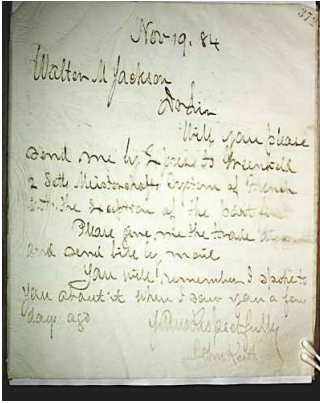 372
Nov 19. 84
Walter M Jackson
Will you please
send me by Express to Greenfield
2 Setts Meisterschaft System of French
with the exception of the part
Please give me the trade
and send bill by mail
You will remember I spoke to
you about it when I saw you a few
days ago
Yours Respectfully
John Keith